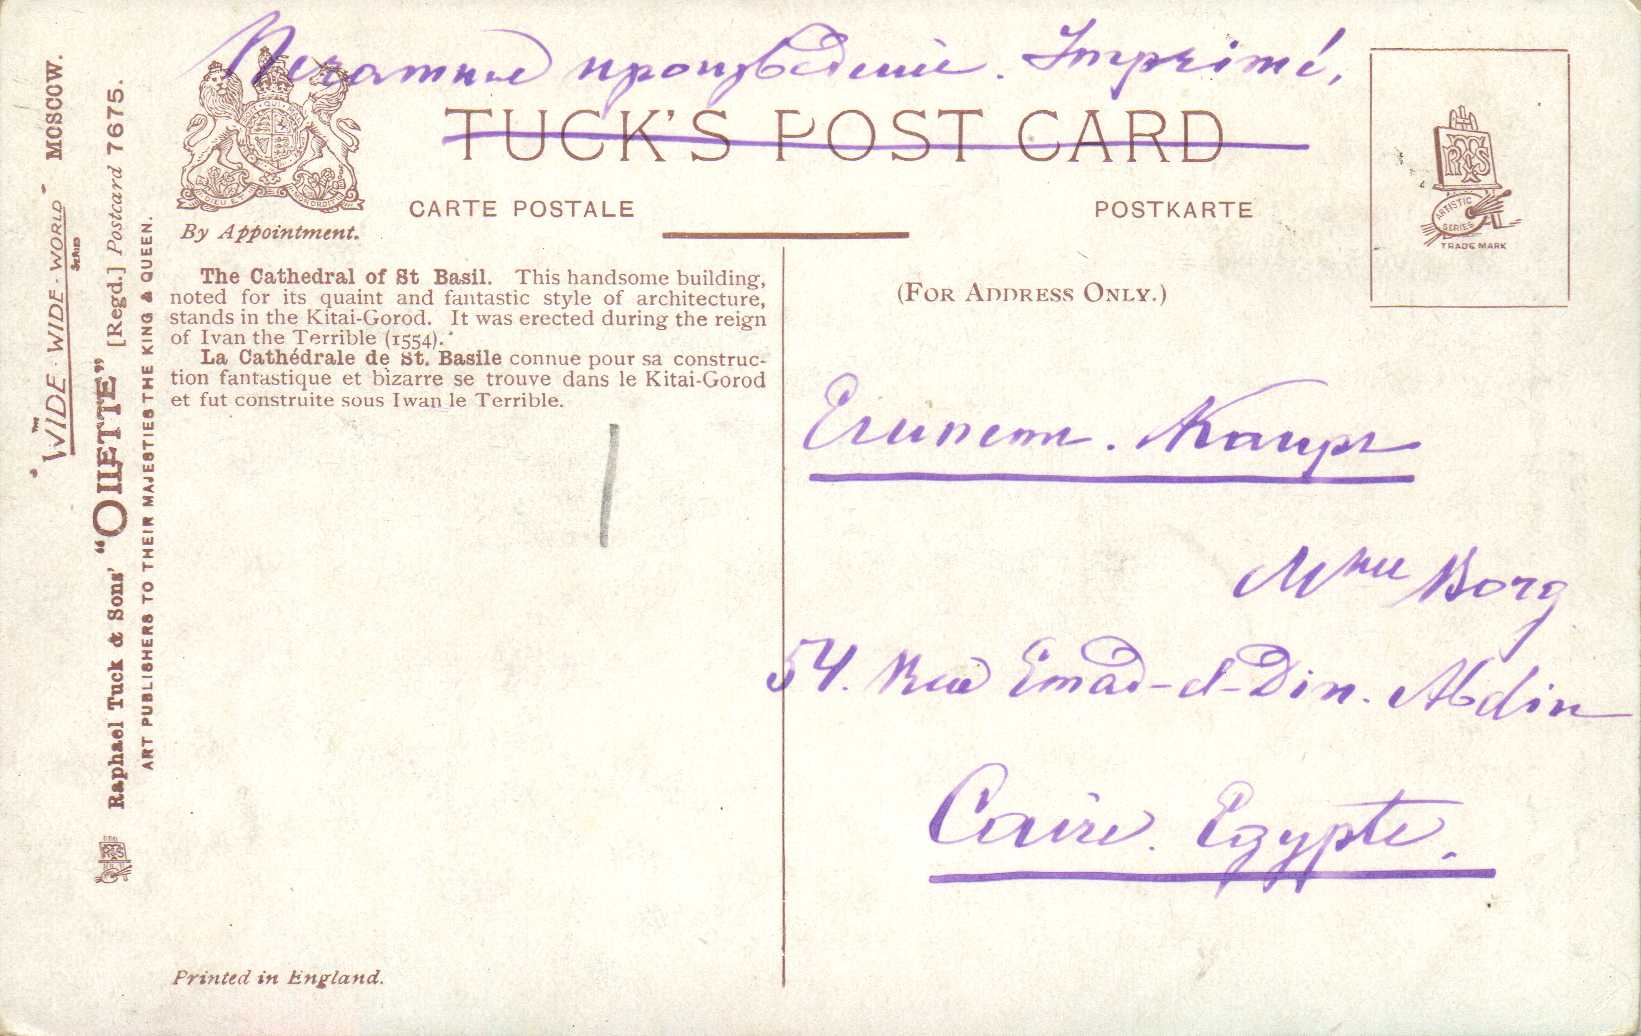 Печатное произведение. Imprimé,
TUCK'S POST CARD
CARTE POSTALE
POSTKARTE
By Appointment.
(FOR ADDRESS ONLY.)
The Cathedral of St Basil. This handsome building,
noted for its quaint and fantastic style of architecture,
stands in the Kitai-Gorod. It was erected during the reign
of Ivan the Terrible (1554).
La Cathédrale de St. Basile connue pour sa construc-
tion fantastique et bizarre se trouve dans le Kitai-Gorod
et fut construite sous Iwan le Terrible.
Египетъ. Каиръ
Mme Borg
54. Rue Emad-el-Din. Abdin
Caire. Egypte.
Printed in England.
"THE WIDE-WIDE-WORLD" SERIES MOSCOW.
Raphael Tuck & Sons' "OILETTE" [Regd.] Postcard 7675.
ART PUBLISHERS TO THEIR MAJESTIES THE KING & QUEEN.
ARTISTIC
SERIES
TRADE MARK